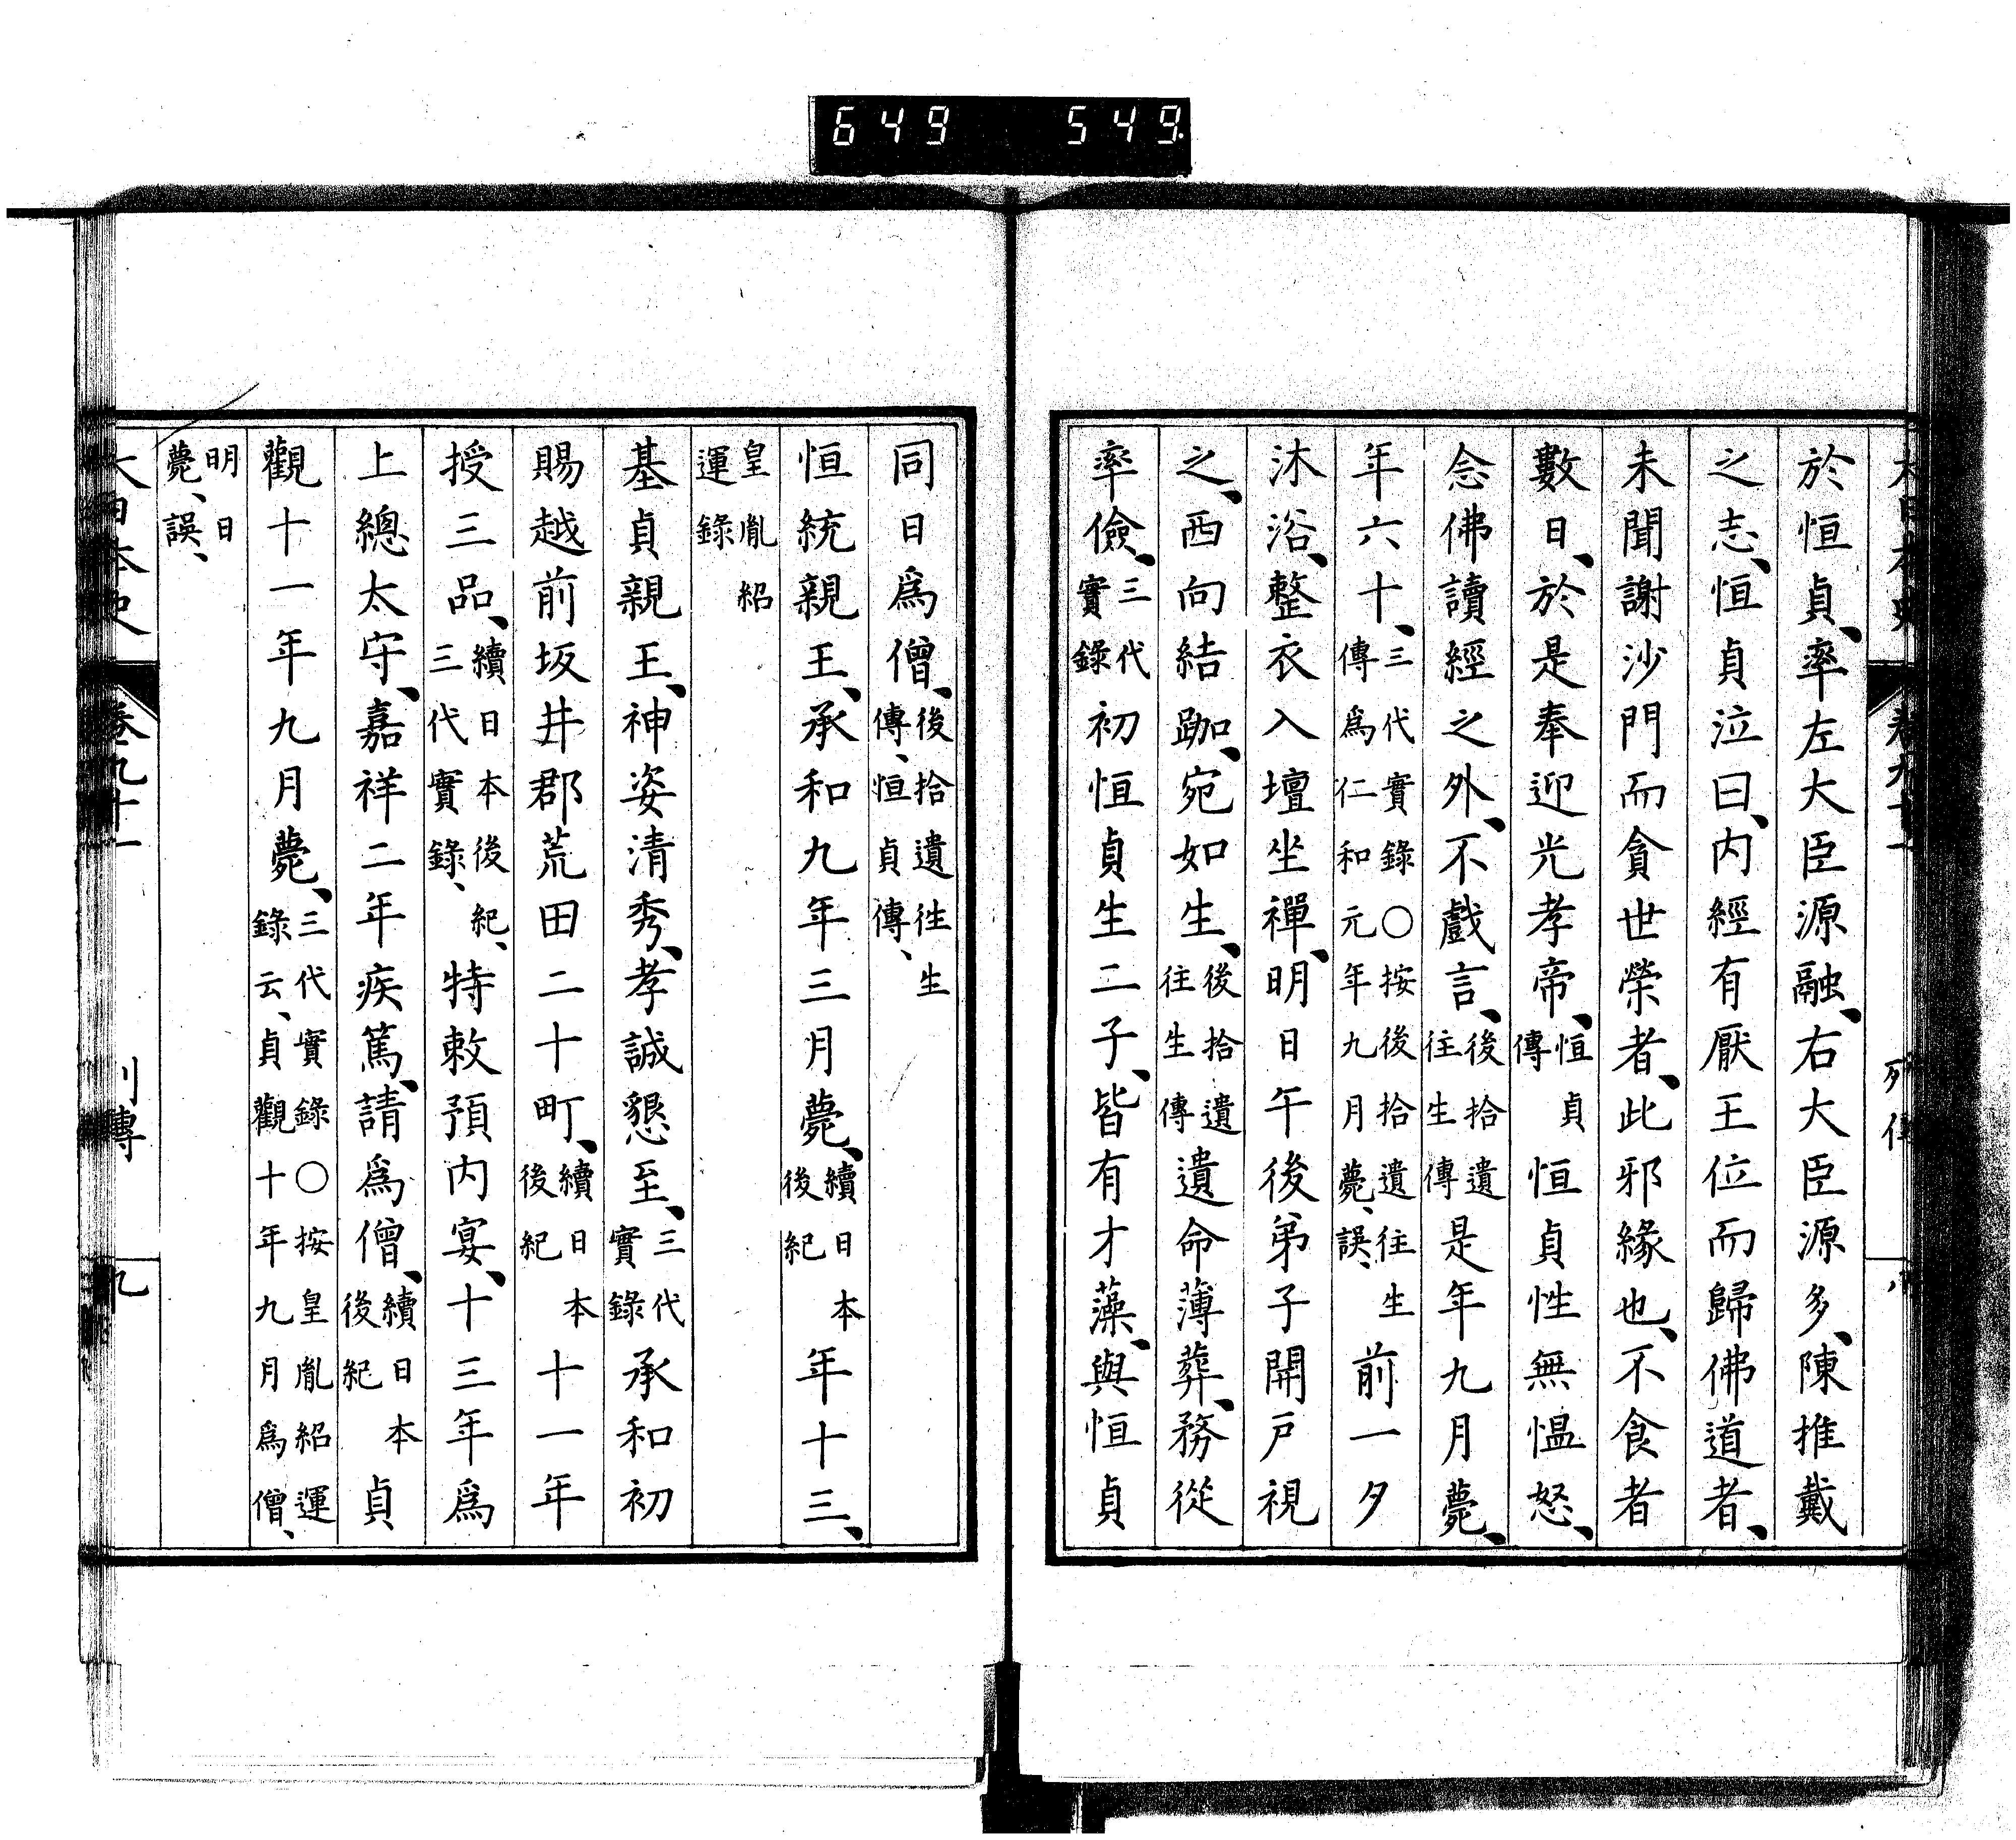 649 549
大日本史 卷九十一 列傳 八
於恒貞、率左大臣源融、右大臣源多、陳推戴
之志、恒貞泣曰、内經有厭王位而歸佛道者、
未聞謝沙門而貪世榮者、此邪緣也、不食者
數日、於是奉迎光孝帝、恒貞傳恒貞性無愠怒、
念佛讀經之外、不戲言、後拾遺往生傳是年九月薨、
年六十、三代實錄〇按後拾遺往生傳爲仁和元年九月薨、誤、前一夕
沐浴、整衣入壇坐禪、明日午後弟子開戸視
之、西向結跏、宛如生、後拾遺往生傳遺命薄葬、務從
率儉、三代實錄初恒貞生二子、皆有才藻、與恒貞
同日爲僧、後拾遺往生傳、恒貞傳、
恒統親王、承和九年三月薨、續日本後紀年十三、
皇胤紹運錄
基貞親王、神姿清秀、孝誠懇至、三代實錄承和初
賜越前坂井郡荒田二十町、續日本後紀十一年
授三品、續日本後紀、三代實錄、特敕預内宴、十三年爲
上總太守、嘉祥二年疾篤、請爲僧、續日本後紀貞
觀十一年九月薨、三代實錄〇按皇胤紹運錄云、貞觀十年九月爲僧、
明日薨、誤、
大日本史 卷九十一 列傳 九